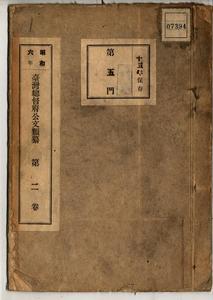 07394
十五年保存
第五門
昭和
六年
臺灣總督府公文類纂 第二卷